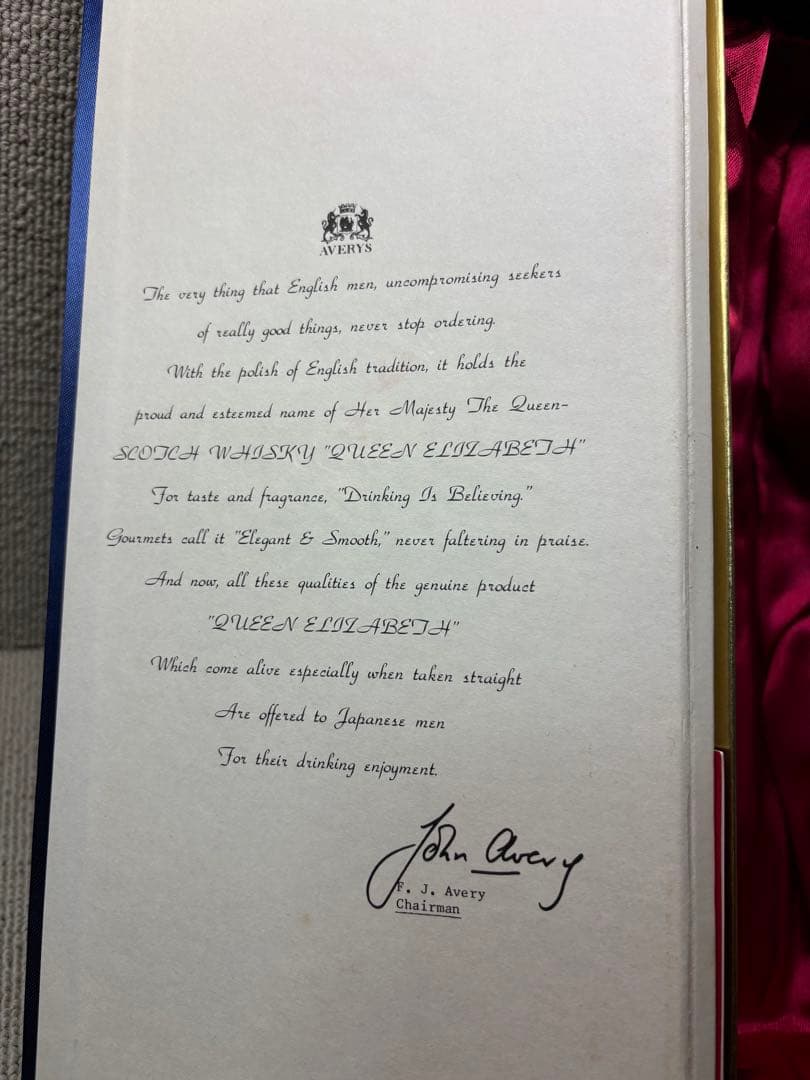 AVERYS
The very thing that English men, uncompromising seekers
of really good things, never stop ordering.
With the polish of English tradition, it holds the
proud and esteemed name of Her Majesty The Queen-
SCOTCH WHISKY "QUEEN ELIZABETH"
For taste and fragrance, "Drinking Is Believing."
Gourmets call it "Elegant & Smooth," never faltering in praise.
And now, all these qualities of the genuine product
"QUEEN ELIZABETH"
Which come alive especially when taken straight
Are offered to Japanese men
For their drinking enjoyment.
John Avery
F. J. Avery
Chairman